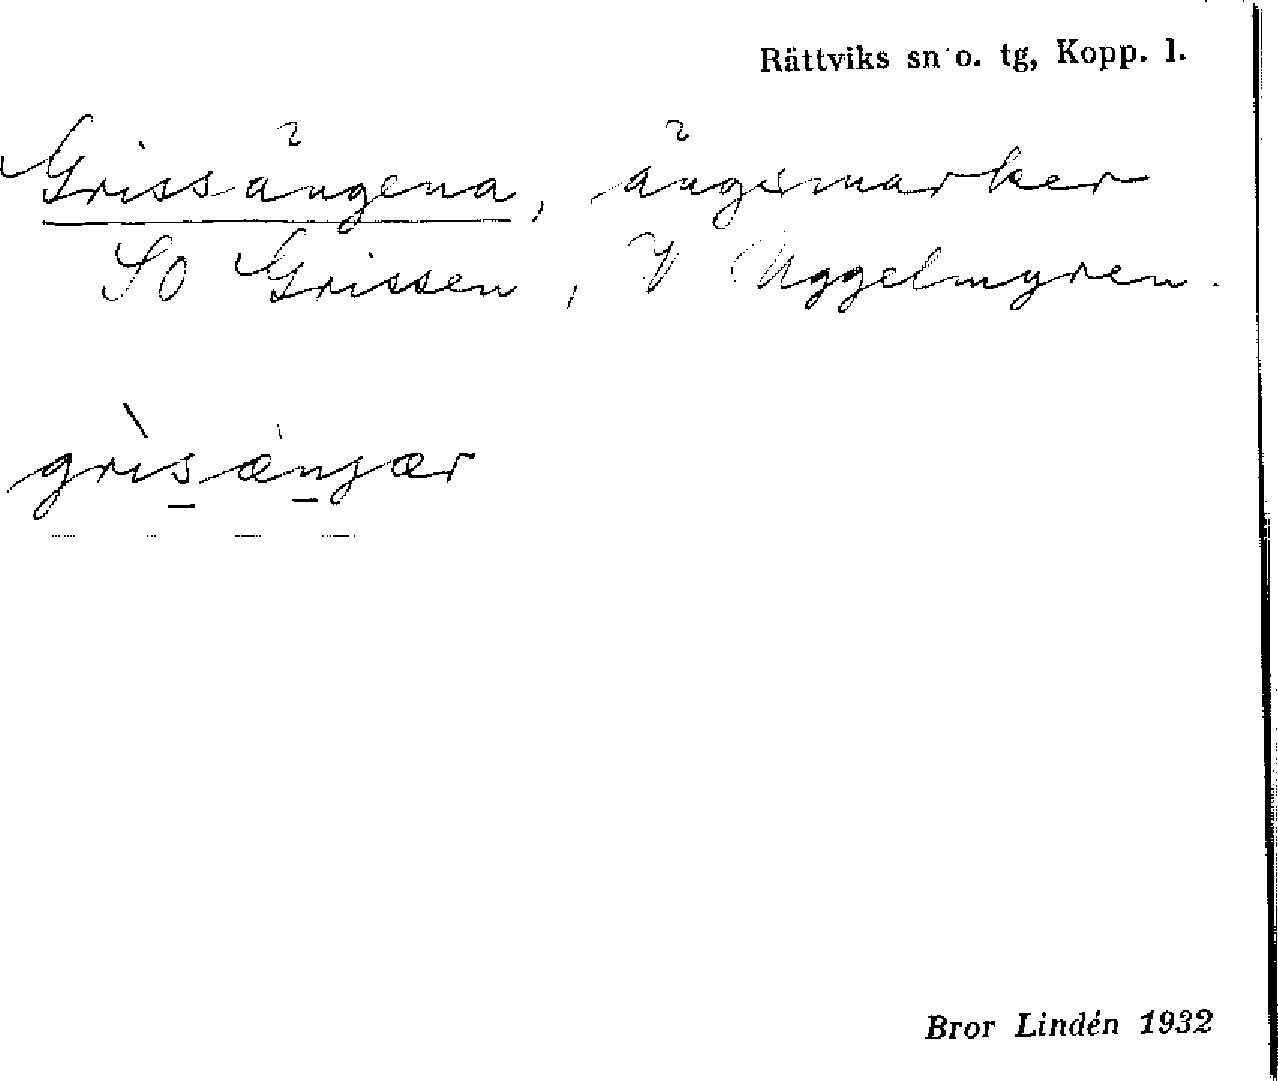 Rättviks sn o. tg, Kopp. l.
Grissängena, ängsmarker
SO Grissen, V Uggelmyren.
grìsængær
Bror Lindén 1932